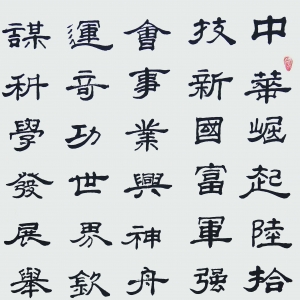 中華崛起陸拾
技新國富軍强
會事業興神舟
運竒功世界欽
謀科學發展舉